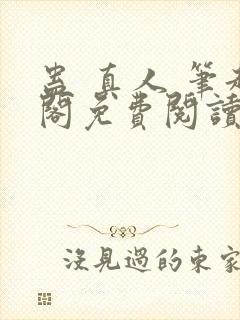 蛊真人 筆
閣免費閱讀
沒見過的東家